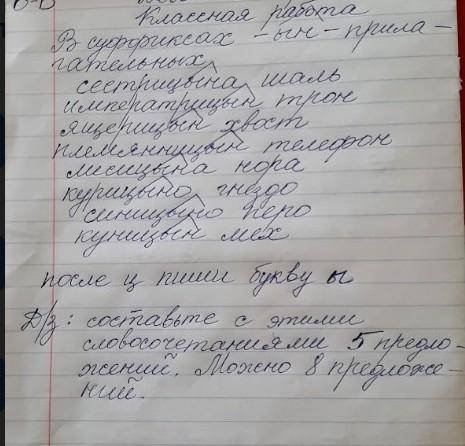 Классная работа
В суффиксах -ын- прила-
гательных
сестрицына шаль
императрицын трон
ящерицын хвост
племянницын телефон
лисицына нора
курицыно гнездо
синицыно перо
куницын мех
после ц пиши букву ы
Д/з: составьте с этими
словосочетаниями 5 предло-
жений. Можно 8 предложе-
ний.